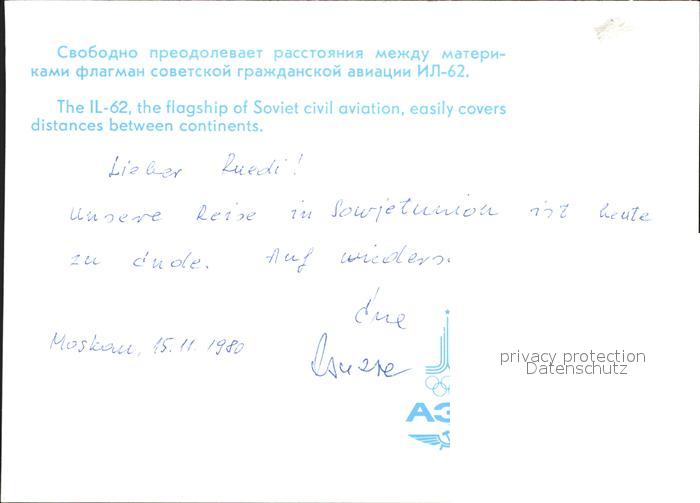 Свободно преодолевает расстояния между матери-
ками флагман советской гражданской авиации ИЛ-62.
The IL-62, the flagship of Soviet civil aviation, easily covers
distances between continents.
Lieber Ruedi!
Unsere Reise in Sowjetunion ist heute
zu Ende. Auf wieders.
Moskau, 15.11.1980
privacy protection
Datenschutz
АЭ